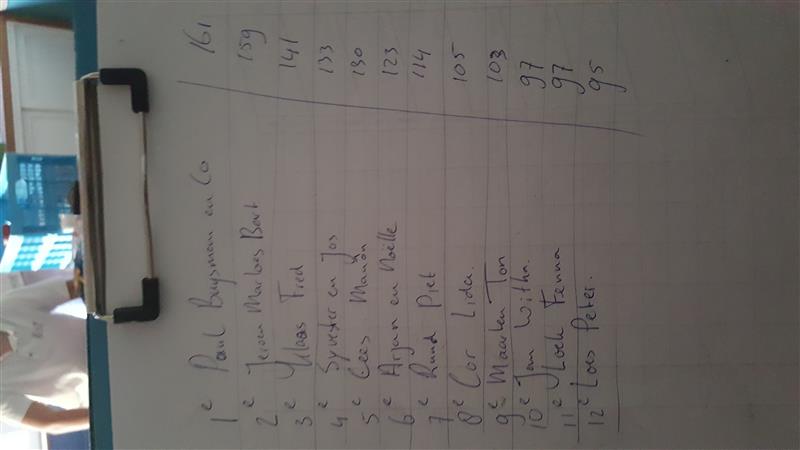 1e Paul Buysman en Co 161
2e Jeroen Marloes Bart 159
3e Klaas Fred 141
4e Sylvester en Jos 133
5e Cees Manon 130
6e Arjan en Noëlle 123
7e Ruud Piet 114
8e Cor Lida. 105
9e Maarten Ton 103
10e Jan With. 97
11e Fenna 97
12e Loes Peter. 95